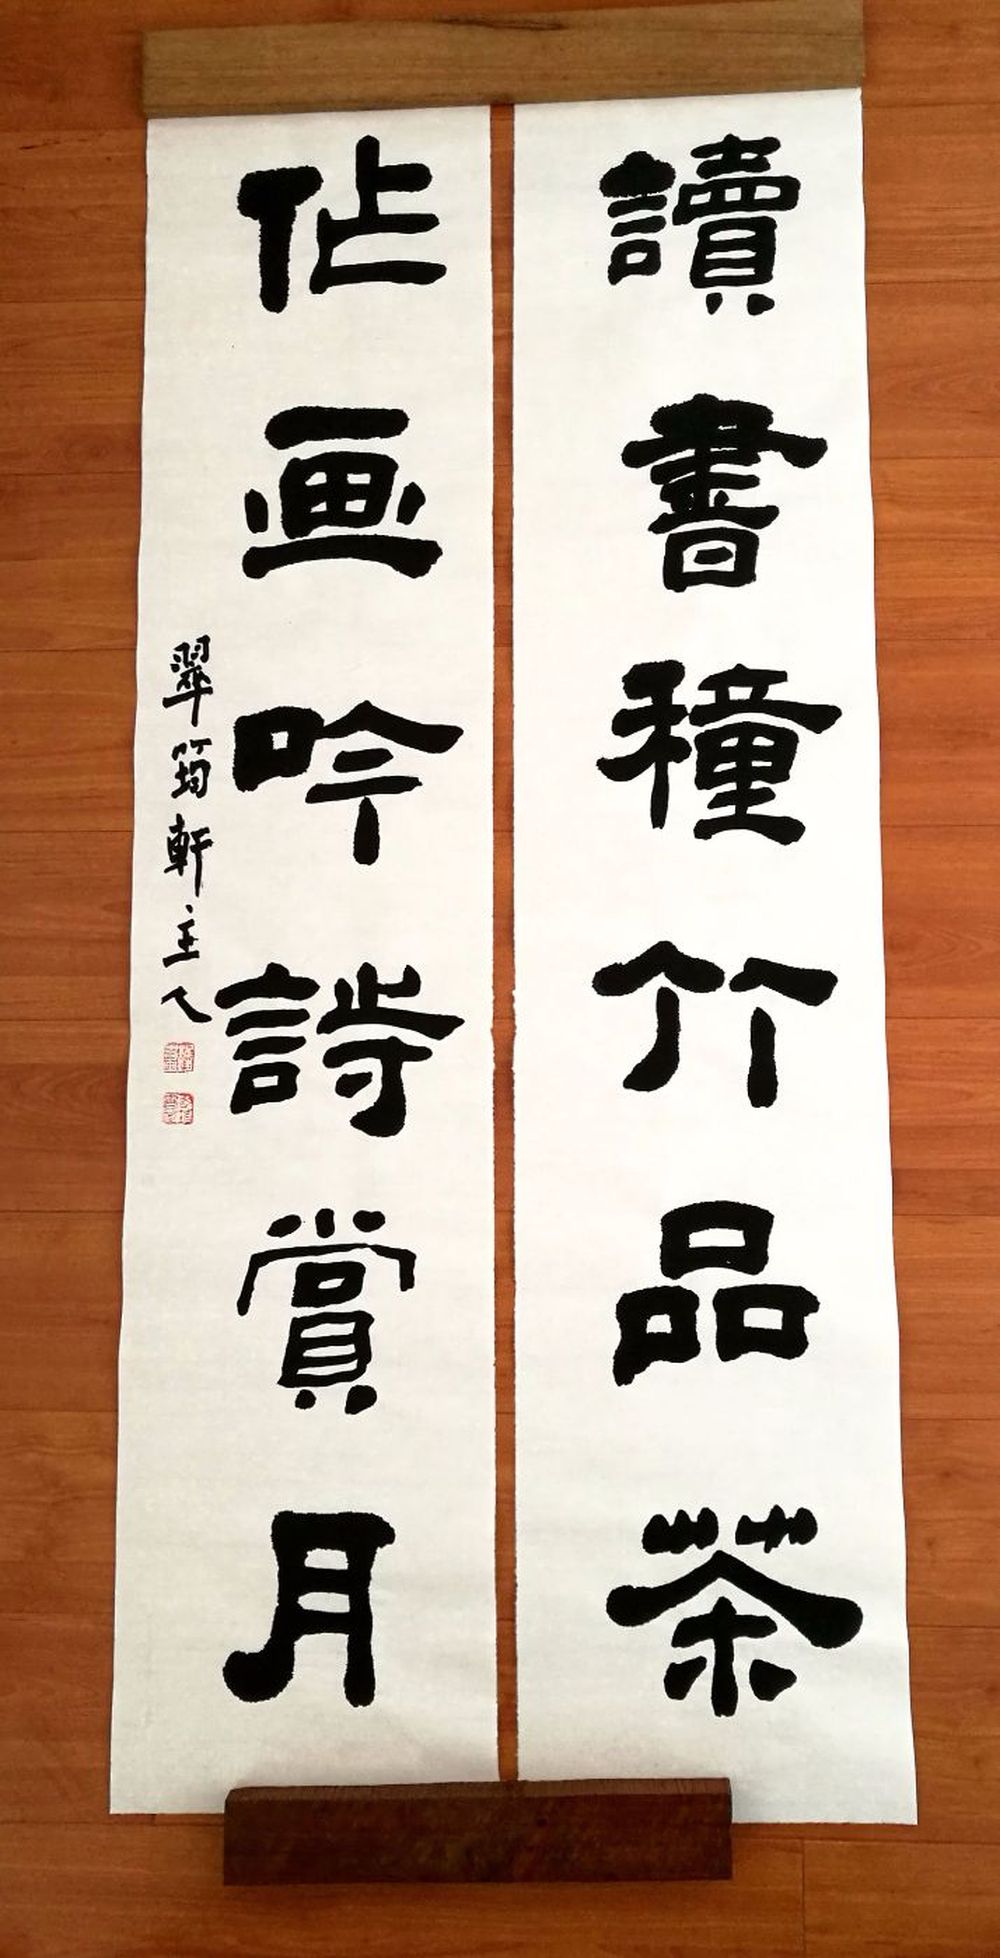 讀書種竹品茶
作画吟詩賞月
翠筠軒主人